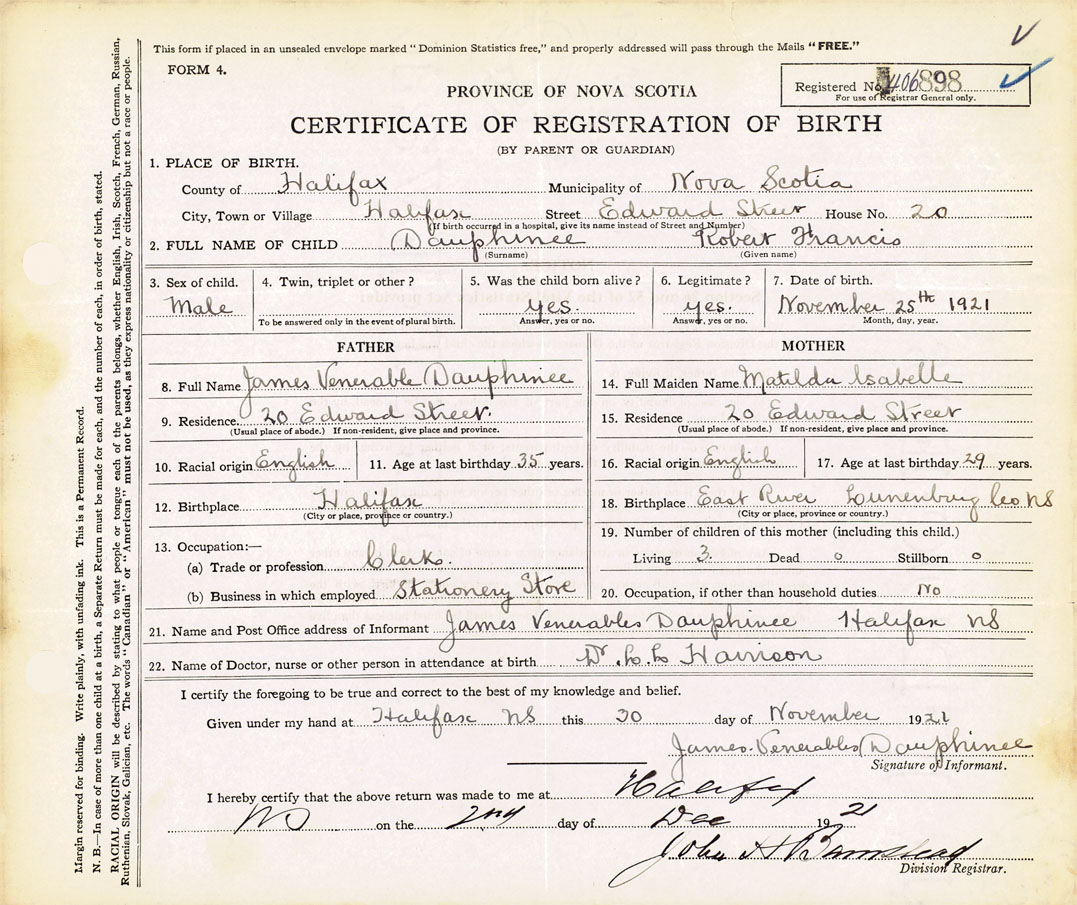 This form if placed in an unsealed envelope marked "Dominion Statistics free," and properly addressed will pass through the Mails "FREE."
FORM 4.
Registered No. 406898
For use of Registrar General only.
PROVINCE OF NOVA SCOTIA
CERTIFICATE OF REGISTRATION OF BIRTH
(BY PARENT OR GUARDIAN)
1. PLACE OF BIRTH.
County of Halifax Municipality of Nova Scotia
City, Town or Village Halifax Street Edward Street House No. 20
(If birth occurred in a hospital, give its name instead of Street and Number)
2. FULL NAME OF CHILD Dauphinee Robert Francis
(Surname) (Given name)
3. Sex of child. 4. Twin, triplet or other? 5. Was the child born alive? 6. Legitimate? 7. Date of birth.
Male yes. yes. November 25th 1921
To be answered only in the event of plural birth. Answer, yes or no. Answer, yes or no. Month, day, year.
FATHER
8. Full Name James Venerable Dauphinee
9. Residence 20 Edward Street.
(Usual place of abode.) If non-resident, give place and province.
10. Racial origin English 11. Age at last birthday 35 years.
12. Birthplace Halifax
(City or place, province or country.)
13. Occupation:—
(a) Trade or profession Clerk.
(b) Business in which employed Stationery Store
MOTHER
14. Full Maiden Name Matilda Isabelle
15. Residence 20 Edward Street
(Usual place of abode.) If non-resident, give place and province.
16. Racial origin English 17. Age at last birthday 29 years.
18. Birthplace East River Lunenburg Co NS
(City or place, province or country.)
19. Number of children of this mother (including this child.)
Living 3. Dead 0 Stillborn 0
20. Occupation, if other than household duties No
21. Name and Post Office address of Informant James Venerables Dauphinee Halifax NS
22. Name of Doctor, nurse or other person in attendance at birth Dr. C. C. Harrison
I certify the foregoing to be true and correct to the best of my knowledge and belief.
Given under my hand at Halifax NS this 30 day of November 1921
James Venerables Dauphinee
Signature of Informant.
I hereby certify that the above return was made to me at Halifax
NS on the 2nd day of Dec 1921
John A Barnstead
Division Registrar.
Margin reserved for binding. Write plainly, with unfading ink. This is a Permanent Record.
N. B.—In case of more than one child at a birth, a Separate Return must be made for each, and the number of each, in order of birth, stated.
RACIAL ORIGIN will be described by stating to what people or tongue each of the parents belongs, whether English, Irish, Scotch, French, German, Russian,
Ruthenian, Slovak, Galician, etc. The words "Canadian" or "American" must not be used, as they express nationality or citizenship but not a race or people.